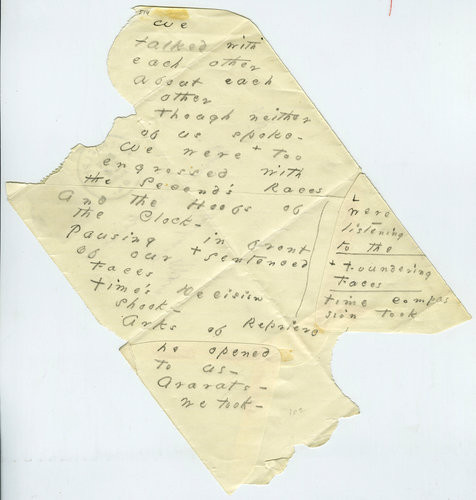 We
talked with
each other
about each
other
Though neither
of us spoke-
We were + too
engrossed with
the Second's Races
And the Hoofs of
the Clock-
Pausing in front
of our + sentenced
Faces
Time's Decision
shook-
Arks of Reprieve
he opened
to us-
Ararats-
we took-
were
listening
to the
+ foundering
Faces
time compas
sion took